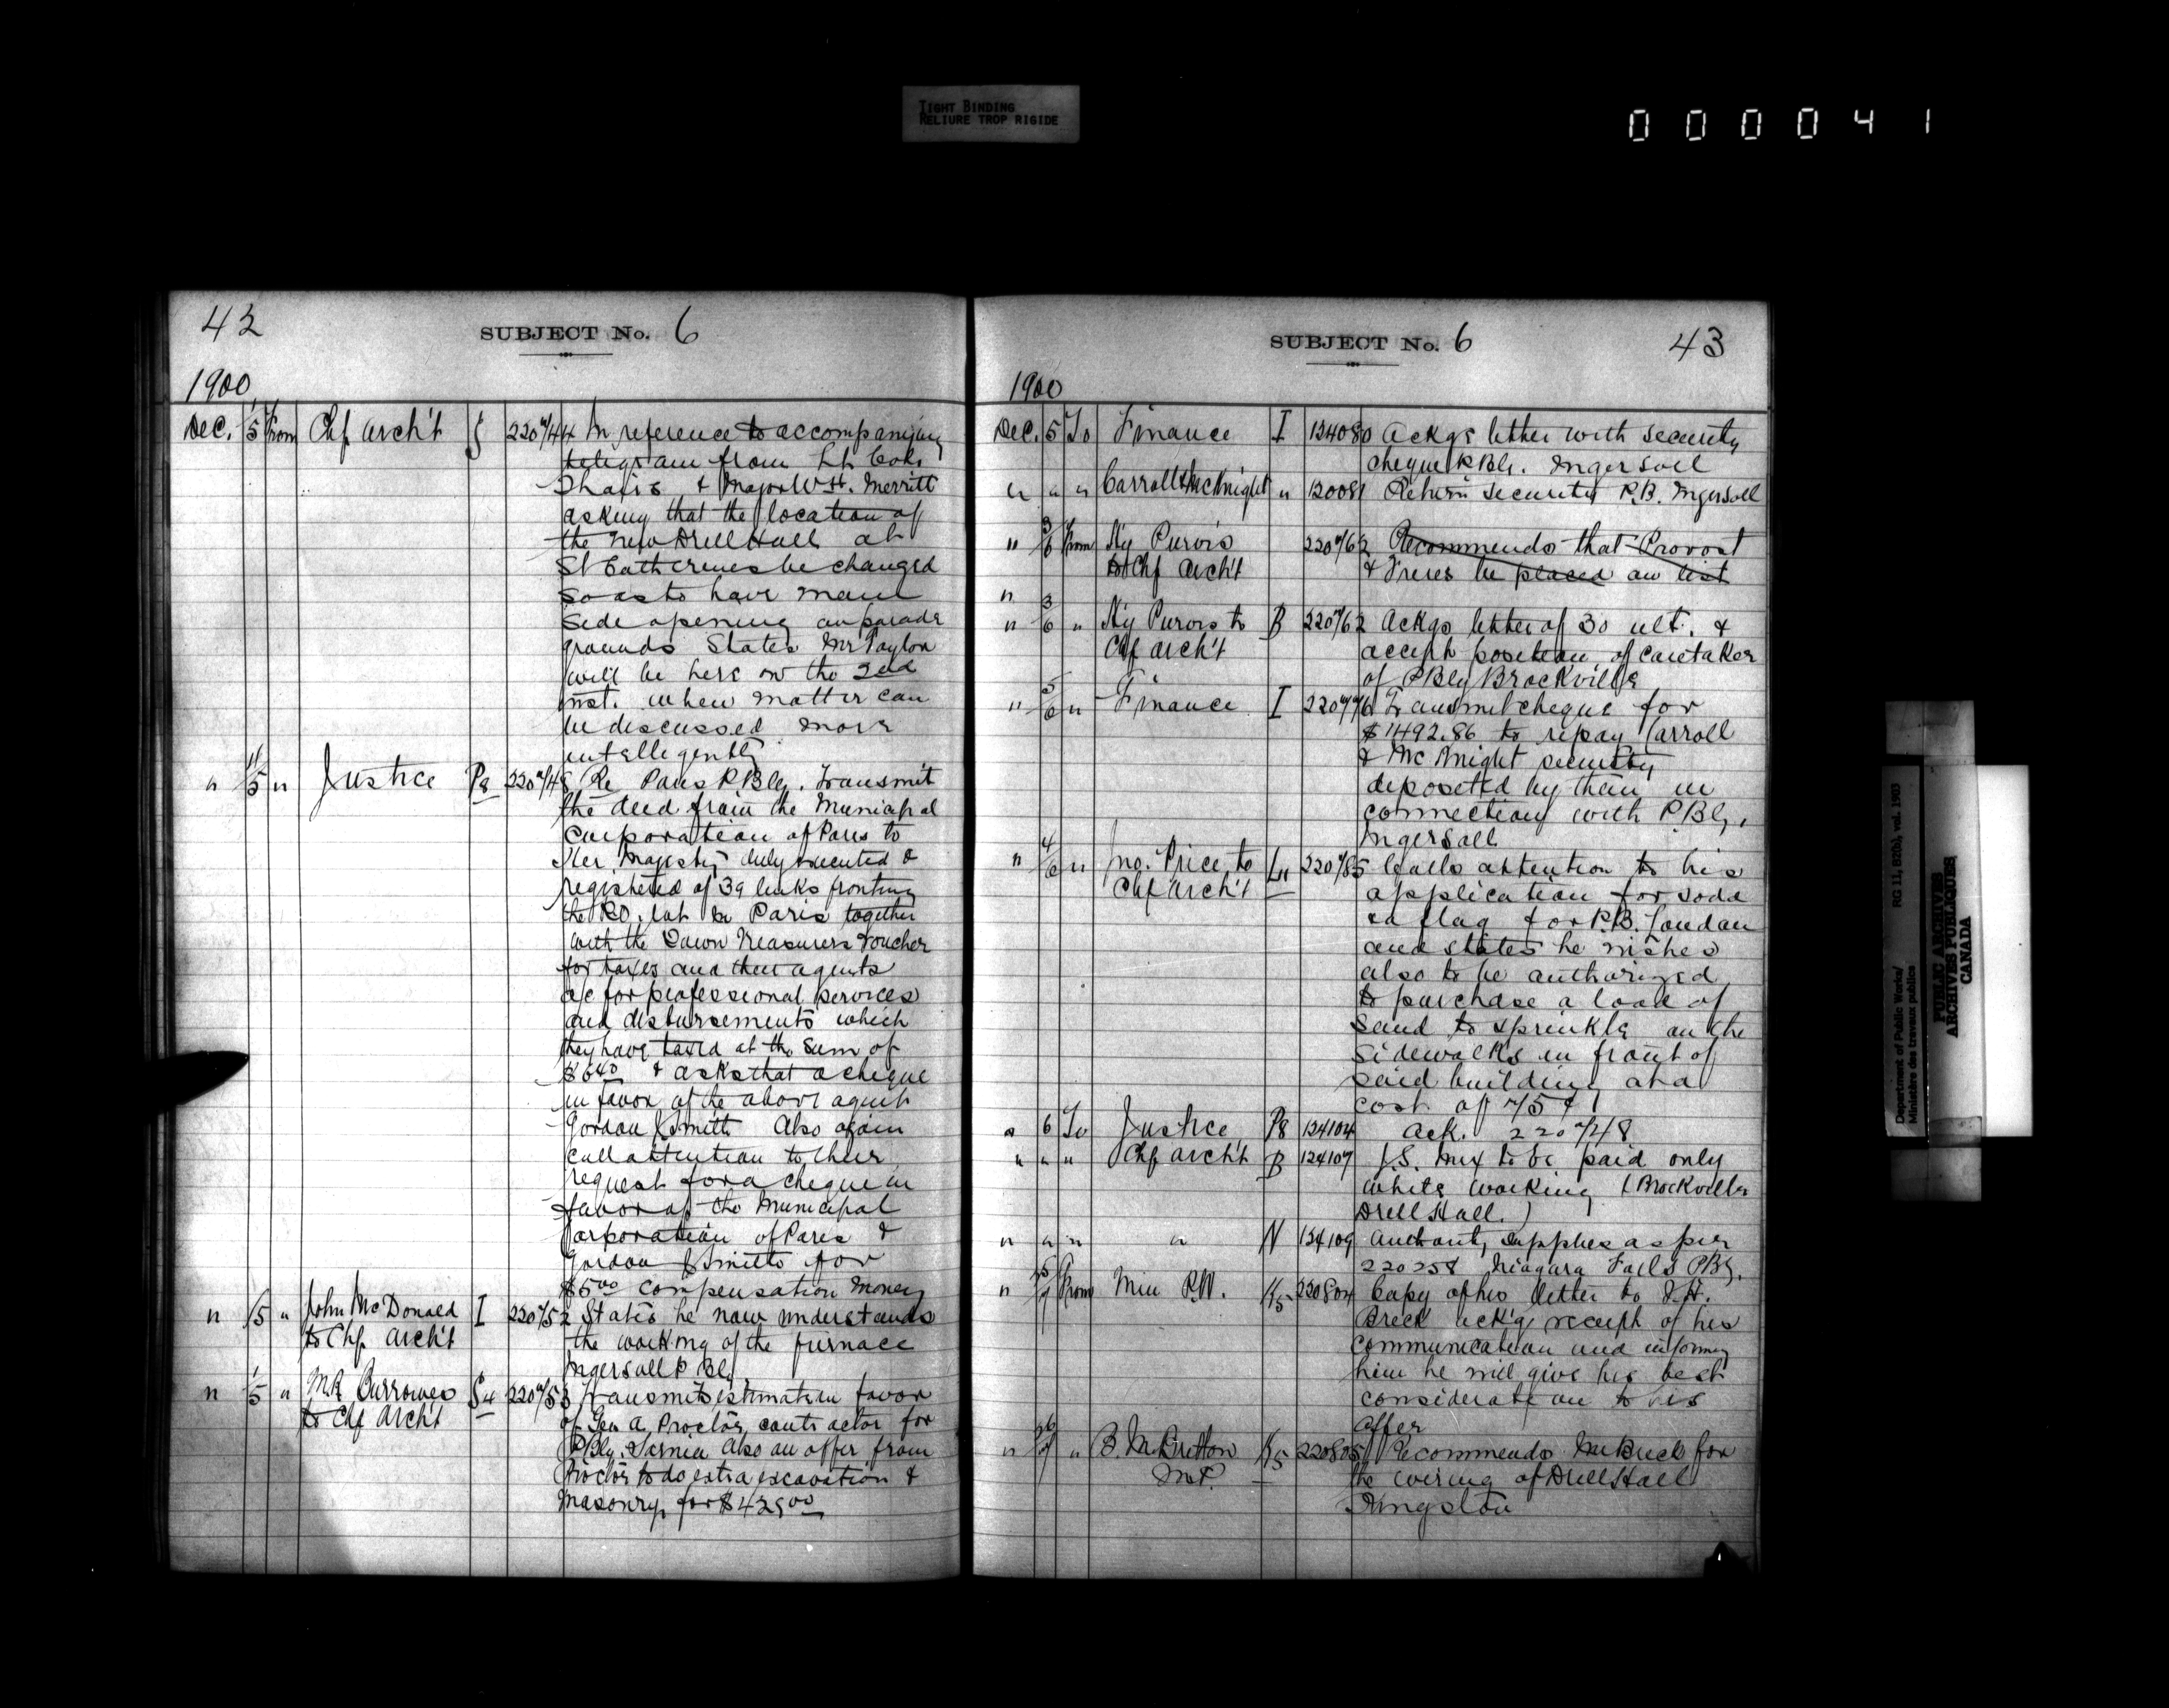 TIGHT BINDING
RELIURE TROP RIGIDE
000041
42
SUBJECT No. 6
1900
Dec. 1/5 From Chf Arch't 220744 In reference to accompanying
telegram from Lt Col.
& Major W H. Merritt
asking that the location of
the new Drill Hall at
St Catherines be changed
so as to have main
side opening on parade
grounds States Mr Taylor
will be here on the 2nd
inst. when matter can
be discussed more
intelligently
" 11/5 " Justice Ps 220748 Re Paris P. Blg. Transmit
the deed from the Municipal
Corporation of Paris to
Her Majesty, duly executed &
registered of 39 links fronting
the P.O. lot in Paris together
with the Town Treasurers voucher
for taxes and their agents
a/c for professional services
and disbursements which
they have taxed at the sum of
& asks that a cheque
in favor of the above agent
Gordon J Smith Also again
call attention to their
request for a cheque in
favor of the Municipal
Corporation of Paris &
Gordon J Smith for
$5.00 compensation money
" 1/5 " John McDonald I 220752 States he now understands
to Chf Arch't the working of the furnace
Ingersoll P Bl,
" 1/5 " Burrowes S4 220753 Transmits estimate in favor
to Chf Arch't of Geo A. Proctor, contractor for
P Blg. Sarnia Also an offer from
Proctor to do extra excavation &
Masonry, for $425.00
SUBJECT No. 6
43
1900
Dec. 5 To Finance I 124080 Ackgs letter with security
cheque P. Blg. Ingersoll
" " " Carroll & McKnight " Return security P.B. Ingersoll
" 3/6 From Hy Purvis 220762 Recommends that Provost
to Chf Arch't & Freres be placed on list
"
" 3/6 " Hy Purvis to B 220762 Ackgs letter of 30 ult. &
Chf Arch't accepts position of Caretaker
of P Blg Brockville
" 5/6 " Finance I 220776 Transmit cheque for
$1492.86 to repay Carroll
& McKnight security
deposited by them in
connection with P. Blg,
Ingersoll
" 4/6 " Jno. Price to Ln 220785 Calls attention to his
Chf Arch't application for soda
& a flag for P.B. London
and states he wishes
also to be authorized
to purchase a load of
sand to sprinkle on the
sidewalks in front of
said building at a
cost of 75¢
" 6 To Justice Ps 124104 Ack. 220748
" " " Chf Arch't B 124107 to be paid only
while working (Brockville
Drill Hall.)
" " " " N 124109 Authority, supplies as per
220258 Niagara Falls P Blg.
" From Min P.W. K5 220804 Copy of his letter to
Breck ack'g receipt of his
communication and informing
him he will give his best
consideration to his
offer
" " B. M. Britton K5 220805 Recommends Mr Breck for
M.P. the wiring of Drill Hall
Kingston
Department of Public Works/
Ministère des travaux publics
RG 11, B2(a), vol. 1903
PUBLIC ARCHIVES
ARCHIVES PUBLIQUES
CANADA